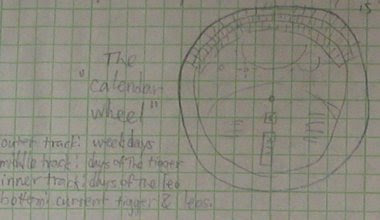 The
"calendar
wheel"
outer track: weekdays
middle track: days of the trigger
inner track: days of the leo
bottom: current trigger & leos.
15